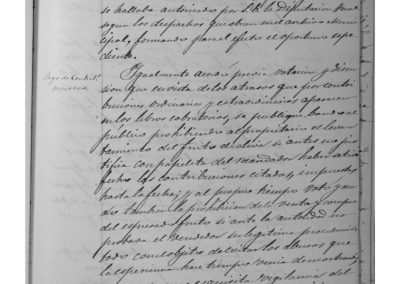 se hallaba autorizado por S.E. la Diputacion
segun los despachos que obran en el Archivo Muni-
cipal, formando para el efecto el oportuno espe-
diente.
Pago de Contribs
morosos
Igualmente acordó previa votacion y discu-
sion que en vista de los atrasos que por contri-
buciones ordinarias y extraordinarias aparecen
en los libros cobratorios, se publique bando al
publico prohibiendo al propietario el levan-
tamiento del fruto de oliva si antes no jus-
tifica con papeleta del recaudador haber satis-
fecho las contribuciones citadas, y impuestos
hasta la fecha; y al propio tiempo
tambien la prohibicion de la venta y compra
del espresado fruto si ante la autoridad no
probara el vendedor su legitima proceden-
cia; todo con objeto de evitar los abusos que
la esperiencia hace tiempo venia demostrando,
esquisita vigilancia del